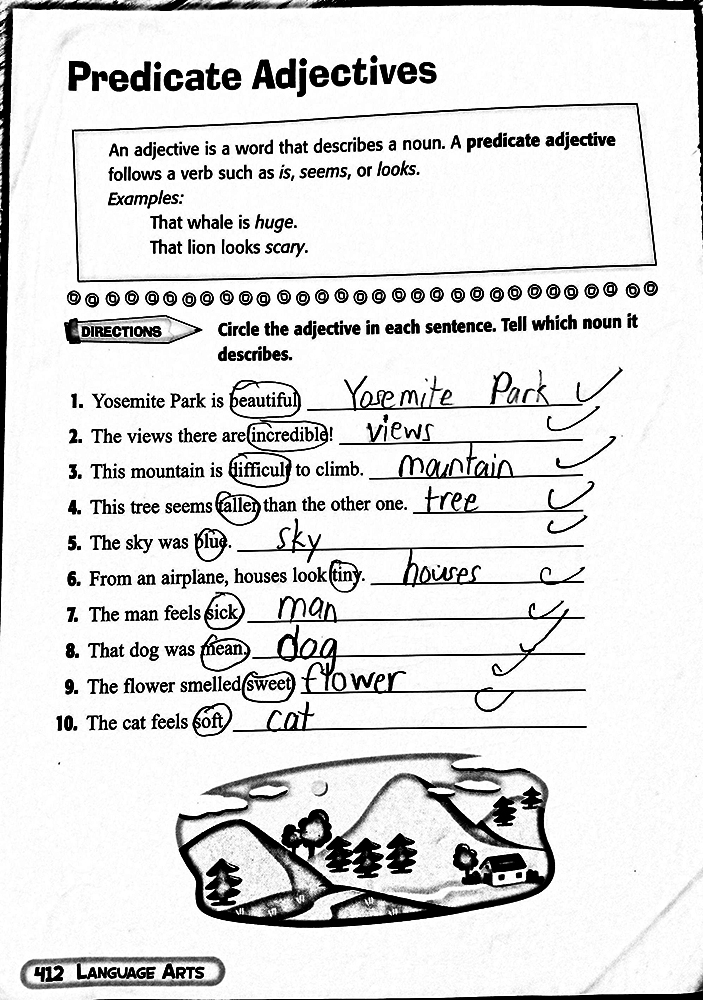 Predicate Adjectives
An adjective is a word that describes a noun. A predicate adjective
follows a verb such as is, seems, or looks.
Examples:
That whale is huge.
That lion looks scary.
DIRECTIONS Circle the adjective in each sentence. Tell which noun it
describes.
1. Yosemite Park is beautiful Yosemite Park
2. The views there are incredible! views
3. This mountain is difficult to climb. mountain
4. This tree seems taller than the other one. tree
5. The sky was blue. sky
6. From an airplane, houses look tiny. houses
7. The man feels sick man
8. That dog was mean. dog
9. The flower smelled sweet flower
10. The cat feels soft cat
412 LANGUAGE ARTS